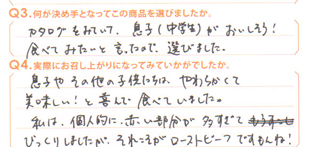 Q3.何が決め手となってこの商品を選びましたか。
カタログをみていて、息子(中学生)が おいしそう!
食べてみたいと言ったので 選びました。
Q4.実際にお召し上がりになってみていかがでしたか。
息子やその他の子供たちは、やわらかくて
美味しい!と喜んで食べていました。
私は、個人的に、赤い部分が多すぎて
びっくりしましたが、それこそが ローストビーフですもんね!